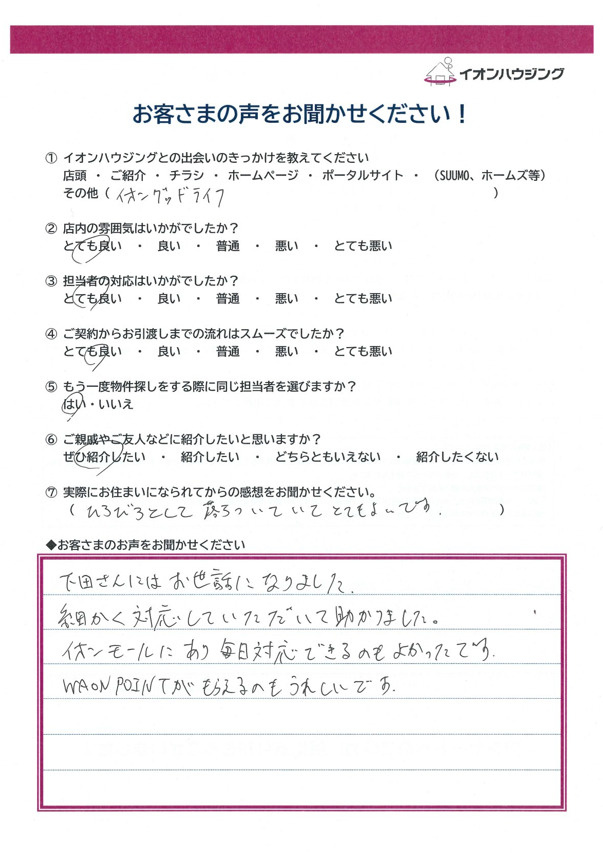 イオンハウジング
お客さまの声をお聞かせください！
① イオンハウジングとの出会いのきっかけを教えてください
店頭 ・ ご紹介 ・ チラシ ・ ホームページ ・ ポータルサイト ・ （SUUMO、ホームズ等）
その他（ イオングッドライフ ）
② 店内の雰囲気はいかがでしたか？
とても良い ・ 良い ・ 普通 ・ 悪い ・ とても悪い
③ 担当者の対応はいかがでしたか？
とても良い ・ 良い ・ 普通 ・ 悪い ・ とても悪い
④ ご契約からお引渡しまでの流れはスムーズでしたか？
とても良い ・ 良い ・ 普通 ・ 悪い ・ とても悪い
⑤ もう一度物件探しをする際に同じ担当者を選びますか？
はい・いいえ
⑥ ご親戚やご友人などに紹介したいと思いますか？
ぜひ紹介したい ・ 紹介したい ・ どちらともいえない ・ 紹介したくない
⑦ 実際にお住まいになられてからの感想をお聞かせください。
（ ひろびろとして 落ちついていて とてもよいです. ）
◆お客さまのお声をお聞かせください
下田さんには お世話に なりました.
細かく 対応していただいて 助かりました。
イオンモールに あり 毎日対応 できるのもよかったです.
WAON POINTが もらえるのも うれしいです.